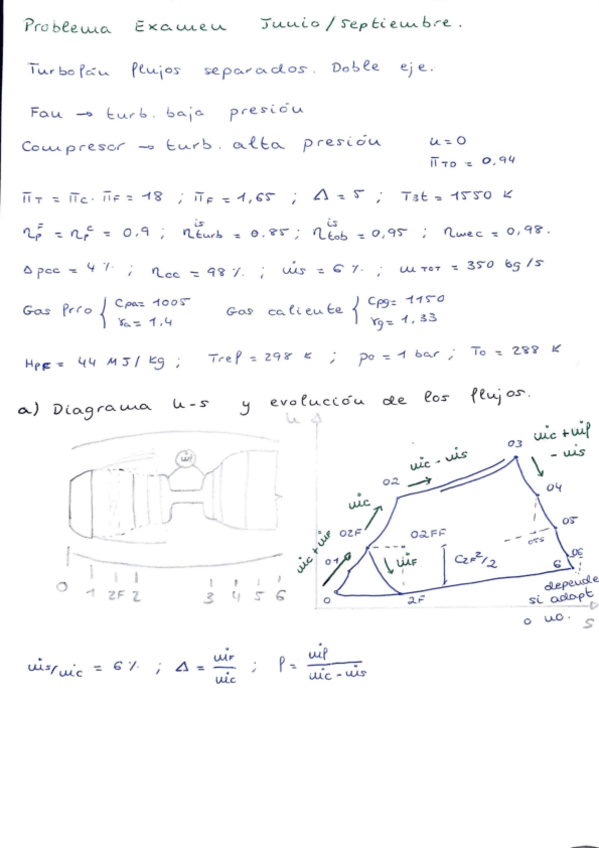 Problema Examen Junio/septiembre.
Turbofán flujos separados. Doble eje.
Fau → turb. baja presión
Compresor → turb. alta presión u=0
πTO = 0,94
πT = πc · πF = 18 ; πF = 1,65 ; Δ = 5 ; T3t = 1550 K
ηpF = ηpC = 0.9 ; ηturb is = 0.85 ; ηtob is = 0,95 ; ηmec = 0,98.
Δpcc = 4% ; ηcc = 98% ; ṁs = 6% ; ṁTOT = 350 kg/s
Gas frío { Cpa = 1005 Gas caliente { Cpg = 1150
γa = 1.4 γg = 1.33
HPF = 44 MJ/kg ; Tref = 298 K ; p0 = 1 bar ; T0 = 288 K
a) Diagrama h-s y evolución de los flujos.
ṁf
0 1 2F 2 3 4 5 6
h
03
ṁc+ṁf
-ṁs
ṁc-ṁs
02
04
ṁc
05
02F
02FF
05s
06
ṁc+ṁF
01
ṁF
C2F²/2
6
0
2F
depende
si adapt
o no.
s
ṁs/ṁc = 6% ; Δ = ṁF/ṁc ; f = ṁf/(ṁc-ṁs)